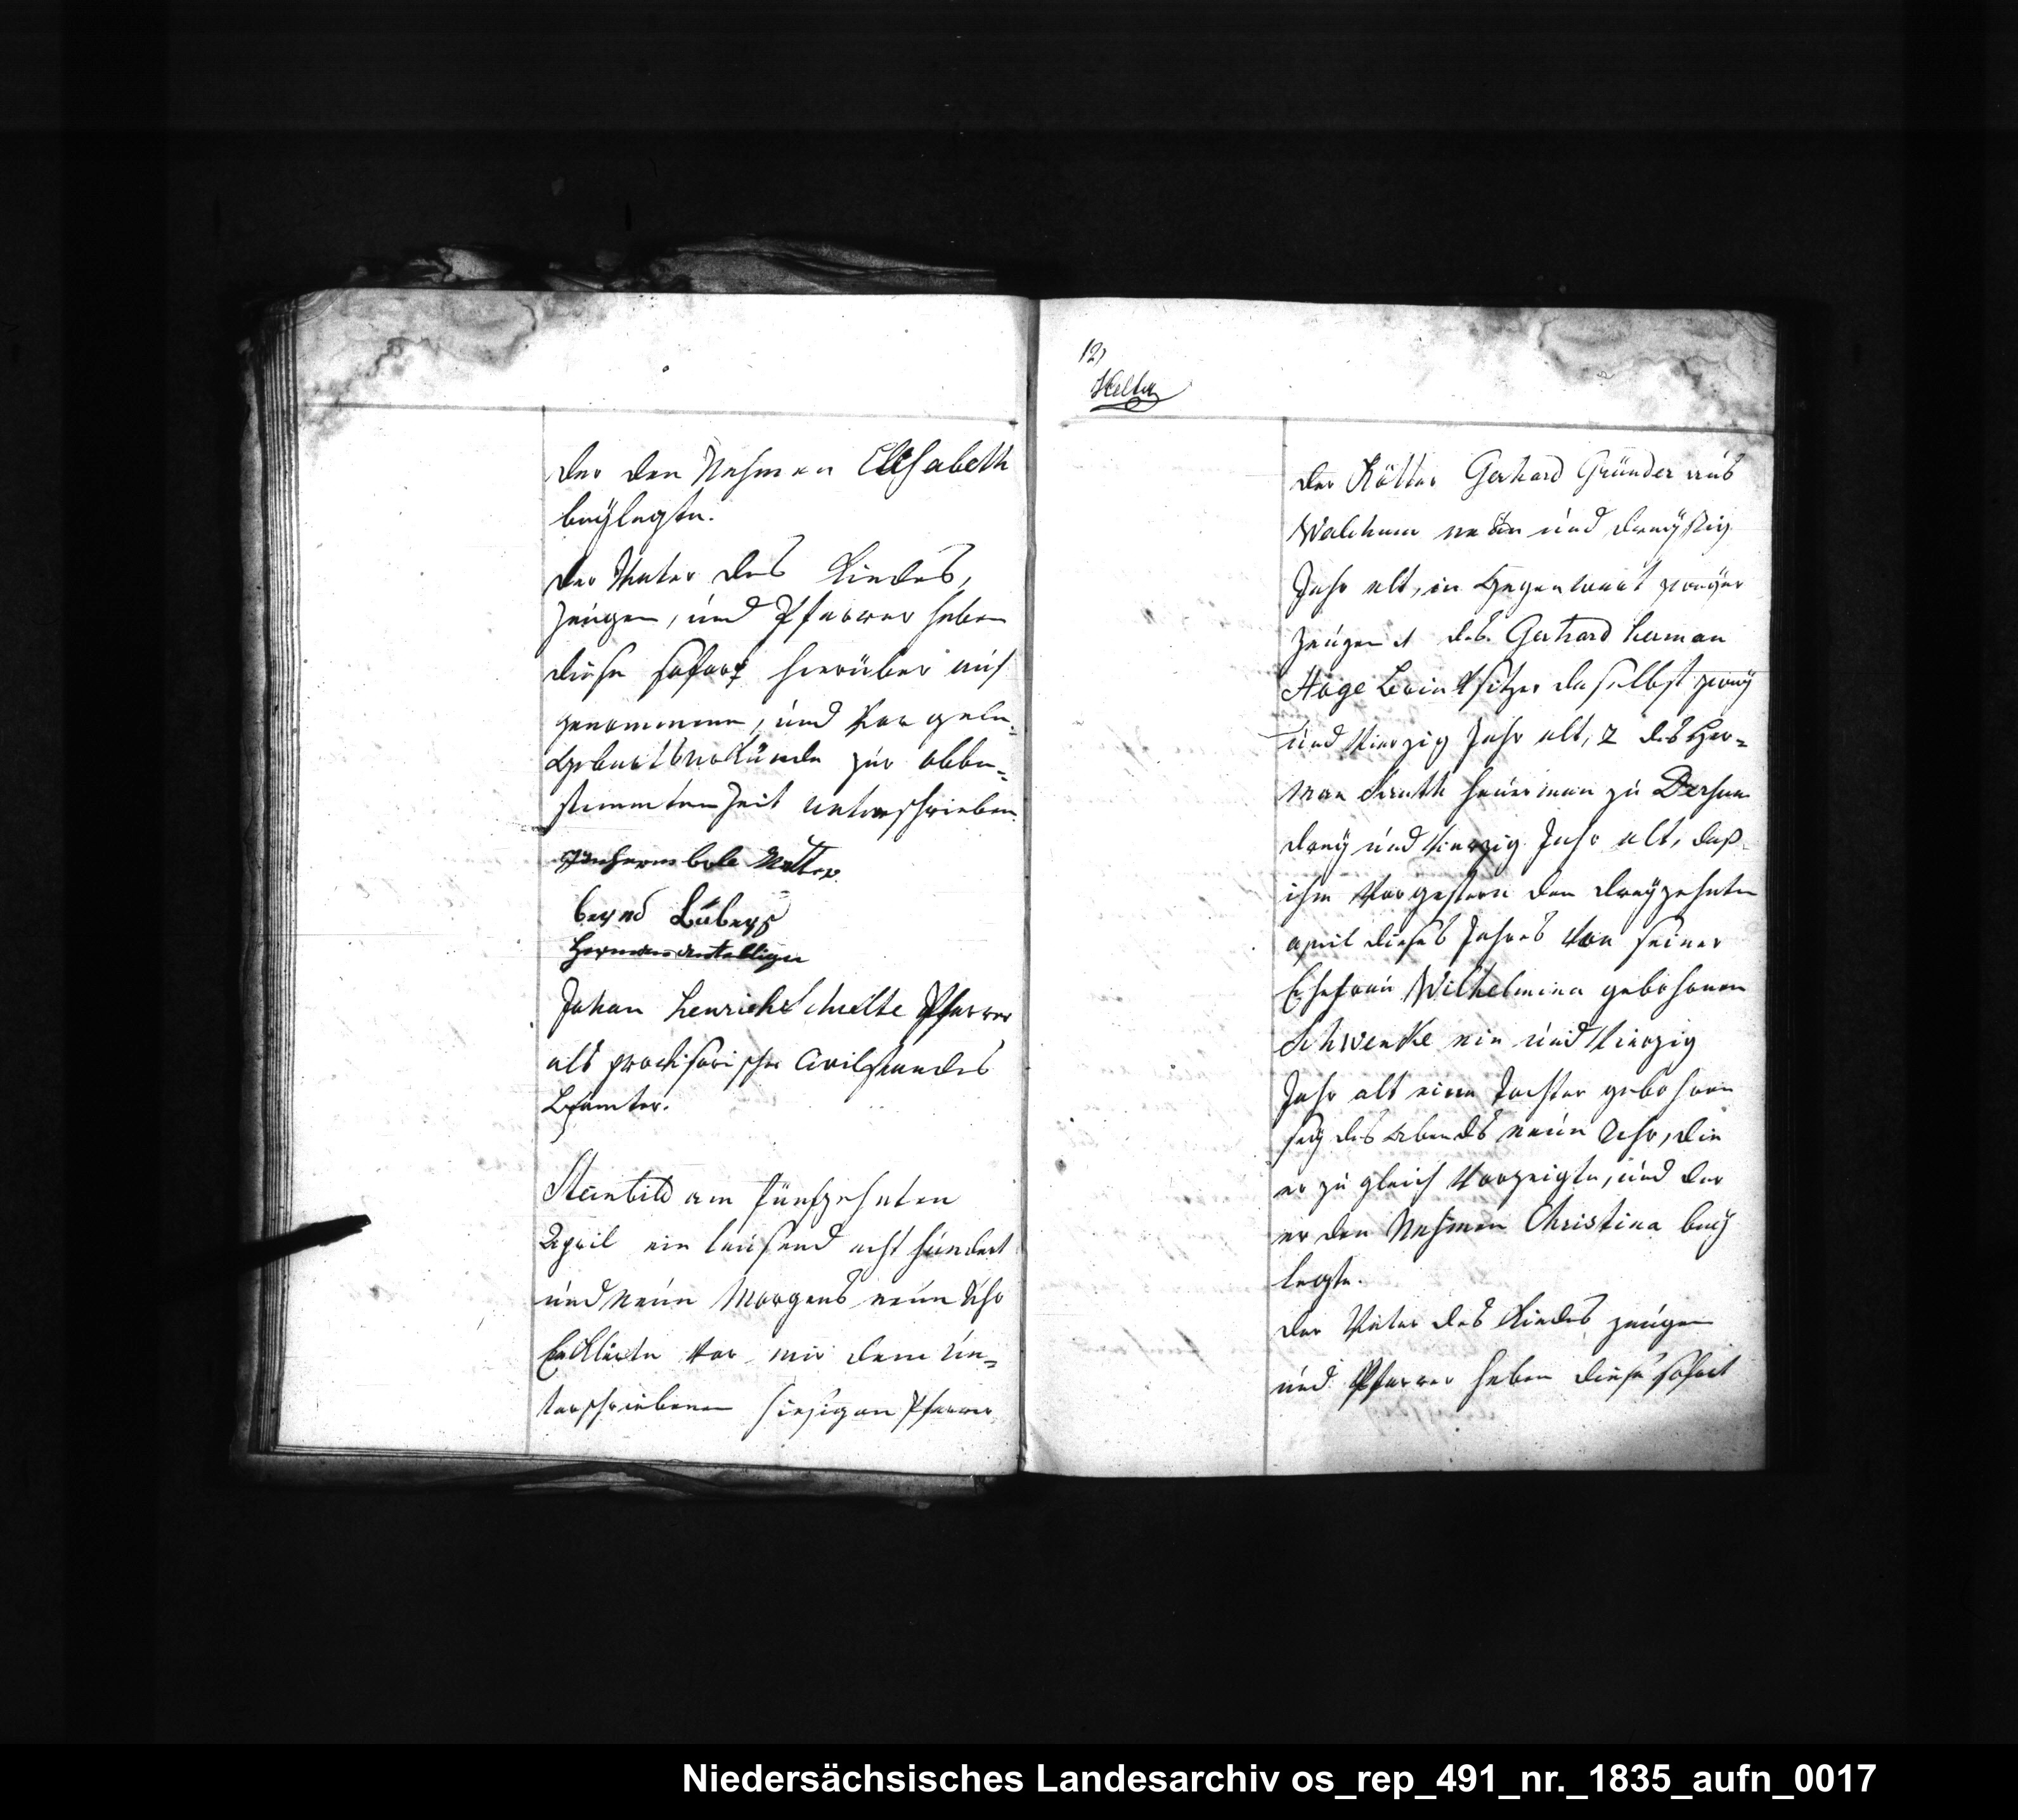 der den Nahmen Elisabeth
beÿlegte.
der Vater des Kindes,
zeugen, und Pfarrer haben
diese sofort hierüber auf
genommene, und vor gele-
Geburtsurkunde zur obbe-
stimmten Zeit unterschrieben
bernd Lübers
Herman
Johan Henrich Schulte Pfarrer
als provisorischer Civilstandes
Beamter.
Steinbild am fünfzehnten
April ein tausend acht hundert
und neun Morgens neun Uhr
Erklärte vor mir dem Un-
terschriebenen hiesigen Pfarrer
12)
der Kötter Gerhard Gründer aus
Walchum neün und dreÿßig
Jahr alt, in Gegenwart zweÿer
zeugen 1 des Gerhard herman
Hage Brinksitzer daselbst zweÿ
und Vierzig Jahr alt, 2 des Her-
man Heuerman zu Dersum
dreÿ und Vierzig Jahr alt, daß
ihm Vorgestern den dreÿzehnten
april dieses Jahres von seiner
Ehefrau Wilhelmina gebohrnen
Schwenke ein und Vierzig
Jahr alt eine Tochter gebohren
seÿ des Abends neün Uhr, die
er zu gleich Vorzeigte, und der
er den Nahmen Christina beÿ
legte.
der Vater des Kindes zeugen
und Pfarrer haben diese sofort
Niedersächsisches Landesarchiv os_rep_491_nr._1835_aufn_0017